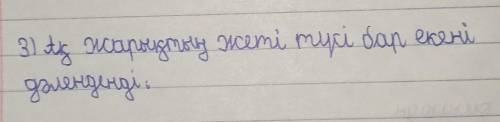 3) Ақ жарықтың жеті түсі бар екені
дәлелденді.